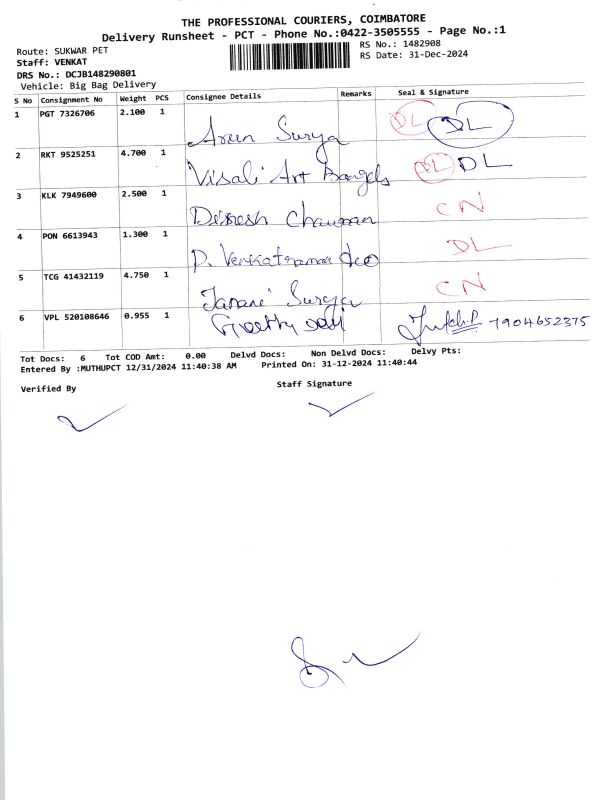 THE PROFESSIONAL COURIERS, COIMBATORE
Delivery Runsheet - PCT - Phone No.:0422-3505555 - Page No.:1
Route: SUKWAR PET RS No.: 1482908
Staff: VENKAT RS Date: 31-Dec-2024
DRS No.: DCJB148290801
Vehicle: Big Bag Delivery
S No Consignment No Weight PCS Consignee Details Remarks Seal & Signature
1 PGT 7326706 2.100 1 Arun Surya DL DL
2 RKT 9525251 4.700 1 Visali Art Bangels DL DL
3 KLK 7949600 2.500 1 Dinesh Chauman CN
4 PON 6613943 1.300 1 P. Venkatraman DL
5 TCG 41432119 4.750 1 Janani Surya CN
6 VPL 520108646 0.955 1 7904652375
Tot Docs: 6 Tot COD Amt: 0.00 Delvd Docs: Non Delvd Docs: Delvy Pts:
Entered By :MUTHUPCT 12/31/2024 11:40:38 AM Printed On: 31-12-2024 11:40:44
Verified By Staff Signature